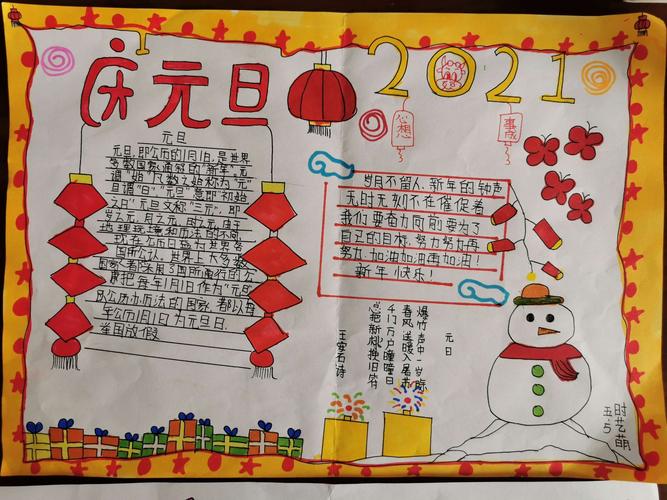 庆元旦
2021
心想
事成
元旦
元旦,即公历的1月1日,是世界
多数国家通称的“新年”。元
谓“始”,凡数之始称为“元”
旦谓“日”“元旦”意即“初始
之日”元旦又称“三元”,即
岁之元,月之元,时之元。由于
地理环境和历法的不同
现在公历日益为世界各
国所公认,世界上大多数
国家都采用了国际通行的公
历把每年1月1日作为“元旦
以公历为历法的国家,都以每
年公历1月1日为元旦日.
全国放假
岁月不留人,新年的钟声
无时无刻不在催促着
我们要奋力向前要为了
自己的目标,努力努力再
努力,加油加油再加油!
新年快乐!
元日
爆竹声中一岁除
春风送暖入屠苏
千门万户曈曈日
总把新桃换旧符
王安石诗
时艺萌
五5